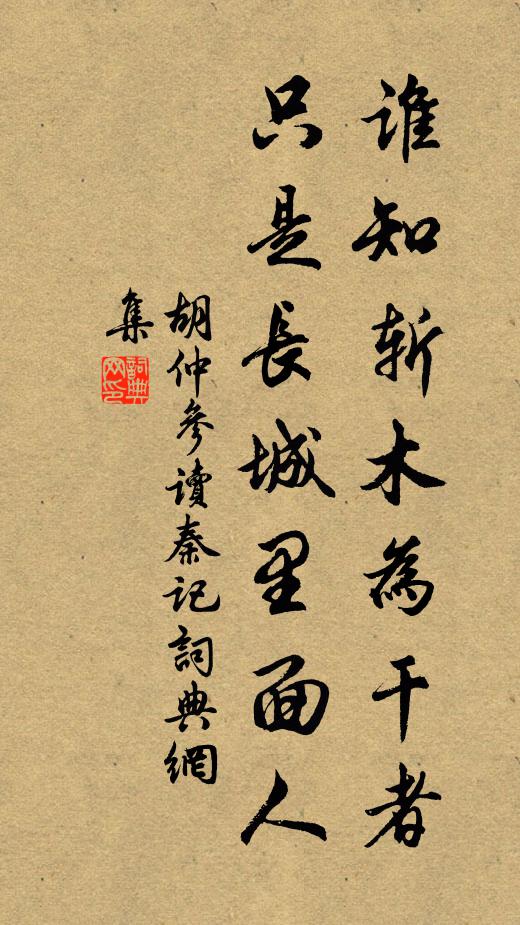 誰知斬木為干者
只是長城里面人
胡仲參讀秦记詞典網
集
詞典
网印